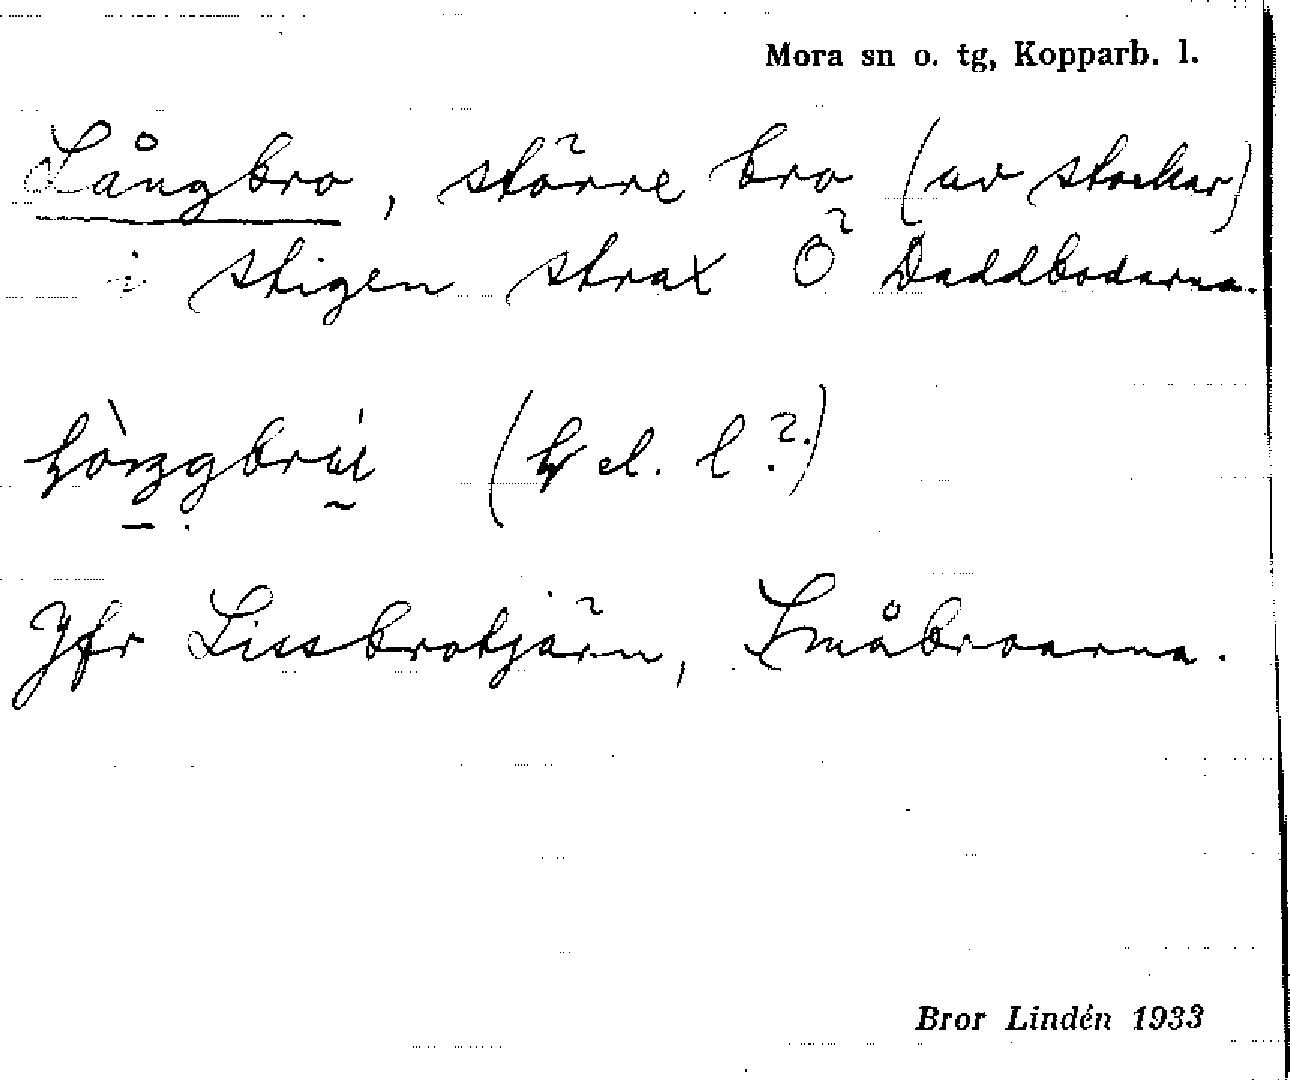 Mora sn o. tg, Kopparb. l.
Långbro, större bro (av stockar)
i stigen strax Ö Daddbodarna.
(el. l?.)
Jfr Lissbrotjärn, Småbroarna.
Bror Lindén 1933